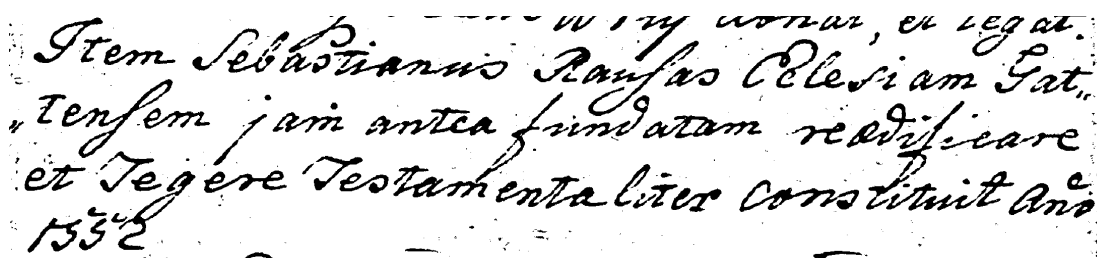 donat, et legat.
Item Sebastianus Raufas Eclesiam Gat„
„tensem jam antea fundatam reædificare
et Tegere Testamentaliter constituit Año
1552